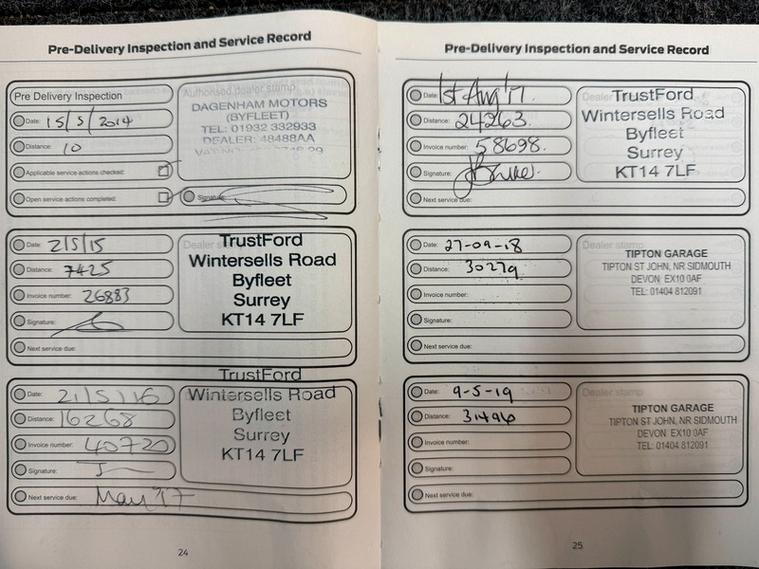 Pre-Delivery Inspection and Service Record
Pre Delivery Inspection
Date: 15/5/2014
Distance: 10
Applicable service actions checked:
Open service actions completed:
Authorised dealer stamp
DAGENHAM MOTORS
(BYFLEET)
TEL: 01932 332933
DEALER: 48488AA
Signature:
Date: 2/5/15
Distance: 7425
Invoice number: 26883
Signature:
Next service due:
Dealer stamp
TrustFord
Wintersells Road
Byfleet
Surrey
KT14 7LF
Date: 21/5/16
Distance: 16268
Invoice number: 40720
Signature:
Next service due: May '17
TrustFord
Wintersells Road
Byfleet
Surrey
KT14 7LF
24
Pre-Delivery Inspection and Service Record
Date: 1st Aug '17.
Distance: 24263
Invoice number: 58698.
Signature:
Next service due:
Dealer
TrustFord
Wintersells Road
Byfleet
Surrey
KT14 7LF
Date: 27-09-18
Distance: 30279
Invoice number:
Signature:
Next service due:
Dealer stamp
TIPTON GARAGE
TIPTON ST JOHN, NR SIDMOUTH
DEVON EX10 0AF
TEL: 01404 812091
Date: 9-5-19
Distance: 31496
Invoice number:
Signature:
Next service due:
Dealer stamp
TIPTON GARAGE
TIPTON ST JOHN, NR SIDMOUTH
DEVON EX10 0AF
TEL: 01404 812091
25